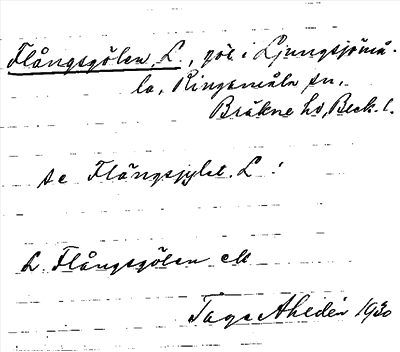 Flångsgölen, L., göl i Ljungsjömå-
la, Ringamåla sn,
Bräkne hd, Blek. l.
se Flångsjylet, L!
L. Flångsgölen ck
Tage Ahldén 1930